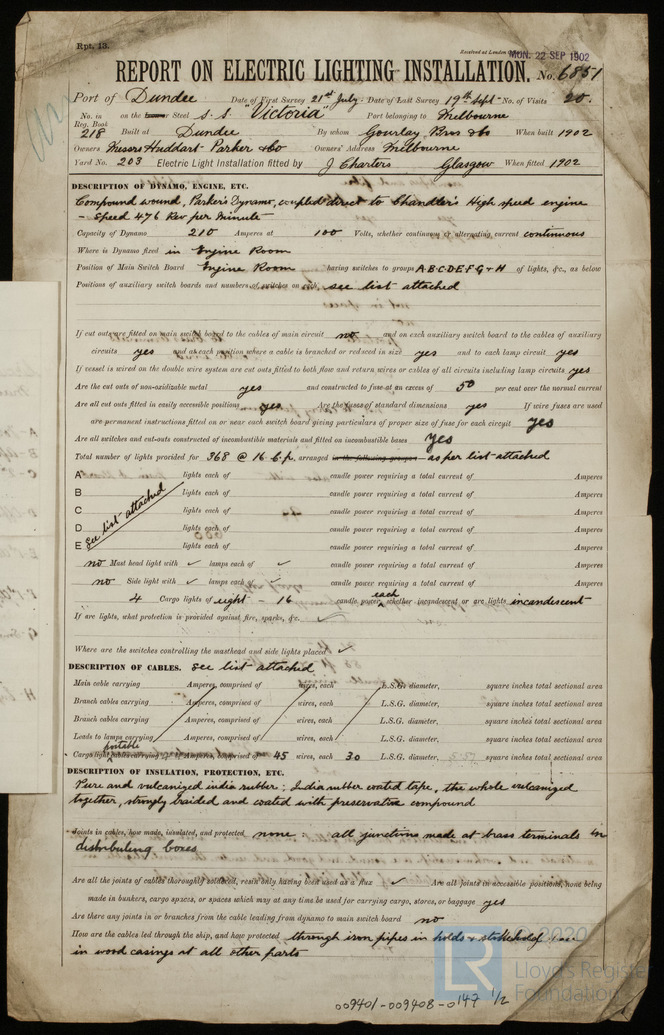 Rpt. 13.
Received at London
MON. 22 SEP 1902
REPORT ON ELECTRIC LIGHTING INSTALLATION. No. 6851
Port of Dundee Date of First Survey 21st July Date of Last Survey 19th Sept No. of Visits 20.
No. in Reg. Book 218 on the Iron or Steel S.S "Victoria" Port belonging to Melbourne
Built at Dundee By whom Gourlay Bros & Co When built 1902
Owners Messrs Huddart Parker & Co Owners' Address Melbourne
Yard No. 203 Electric Light Installation fitted by J Charters Glasgow When fitted 1902
DESCRIPTION OF DYNAMO, ENGINE, ETC.
Compound wound, Parker's Dynamo, coupled direct to Chandler's High speed engine
- Speed 476 Rev per Minute
Capacity of Dynamo 210 Amperes at 100 Volts, whether continuous or alternating current continuous
Where is Dynamo fixed in Engine Room
Position of Main Switch Board Engine Room having switches to groups A B C D E F G & H of lights, &c., as below
Positions of auxiliary switch boards and numbers of switches on each see list attached
If cut outs are fitted on main switch board to the cables of main circuit no and on each auxiliary switch board to the cables of auxiliary
circuits yes and at each position where a cable is branched or reduced in size yes and to each lamp circuit yes
If vessel is wired on the double wire system are cut outs fitted to both flow and return wires or cables of all circuits including lamp circuits yes
Are the cut outs of non-oxidizable metal yes and constructed to fuse at an excess of 50 per cent over the normal current
Are all cut outs fitted in easily accessible positions yes Are the fuses of standard dimensions yes If wire fuses are used
are permanent instructions fitted on or near each switch board giving particulars of proper size of fuse for each circuit yes
Are all switches and cut-outs constructed of incombustible materials and fitted on incombustible bases yes
Total number of lights provided for 368 @ 16 C.p. arranged in the following groups as per list attached
A lights each of candle power requiring a total current of Amperes
B lights each of candle power requiring a total current of Amperes
C lights each of candle power requiring a total current of Amperes
D lights each of candle power requiring a total current of Amperes
E lights each of candle power requiring a total current of Amperes
See list attached
no Mast head light with ✓ lamps each of ✓ candle power requiring a total current of Amperes
no Side light with ✓ lamps each of ✓ candle power requiring a total current of Amperes
4 Cargo lights of eight - 16 candle power each, whether incandescent or arc lights incandescent
If arc lights, what protection is provided against fire, sparks, &c. ✓
Where are the switches controlling the masthead and side lights placed ✓
DESCRIPTION OF CABLES. See list attached
Main cable carrying Amperes, comprised of wires, each L.S.G. diameter, square inches total sectional area
Branch cables carrying Amperes, comprised of wires, each L.S.G. diameter, square inches total sectional area
Branch cables carrying Amperes, comprised of wires, each L.S.G. diameter, square inches total sectional area
Leads to lamps carrying Amperes, comprised of wires, each L.S.G. diameter, square inches total sectional area
Cargo light portable cables carrying Amperes, comprised of 45 wires, each 30 L.S.G. diameter, square inches total sectional area
DESCRIPTION OF INSULATION, PROTECTION, ETC.
Pure and vulcanized india rubber; India rubber coated tape, the whole vulcanized
together, strongly braided and coated with preservative compound
Joints in cables, how made, insulated, and protected none: all junctions made at brass terminals in
distributing boxes
Are all the joints of cables thoroughly soldered, resin only having been used as a flux ✓ Are all joints in accessible positions, none being
made in bunkers, cargo spaces, or spaces which may at any time be used for carrying cargo, stores, or baggage yes
Are there any joints in or branches from the cable leading from dynamo to main switch board no
How are the cables led through the ship, and how protected through iron pipes in holds & stokehold and
in wood casings at all other parts
©2020
LR
Lloyd's Register
Foundation
009401-009408-0147 1/2